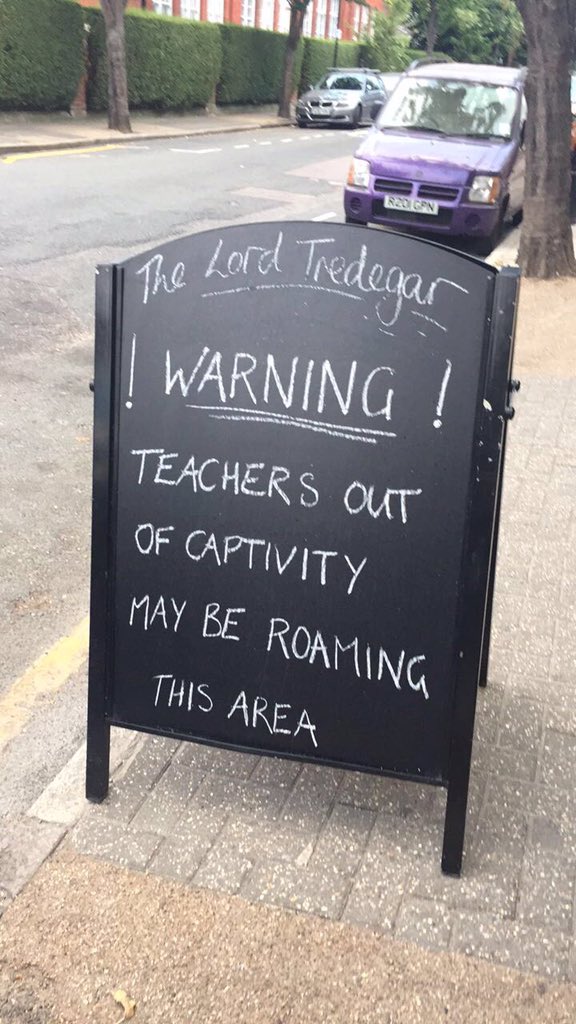 The Lord Tredegar
! WARNING !
TEACHERS OUT
OF CAPTIVITY
MAY BE ROAMING
THIS AREA
R201 GPN